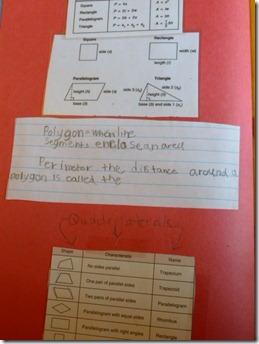 Square P = 4s
Rectangle P = 2l + 2w
Parallelogram
Triangle
Square Rectangle
side (s) width (w)
length (l)
Parallelogram Triangle
height (h) side (s)
base (b) base (b) and side 1 (s₁)
Polygon = when line
segments enclose an area
Perimeter the distance around a
polygon is called the
Quadrilaterals
Shape Characteristic Name
No sides parallel Trapezium
One pair of parallel sides Trapezoid
Two pairs of parallel sides Parallelogram
Parallelogram with equal sides Rhombus
Parallelogram with right angles Rectangle